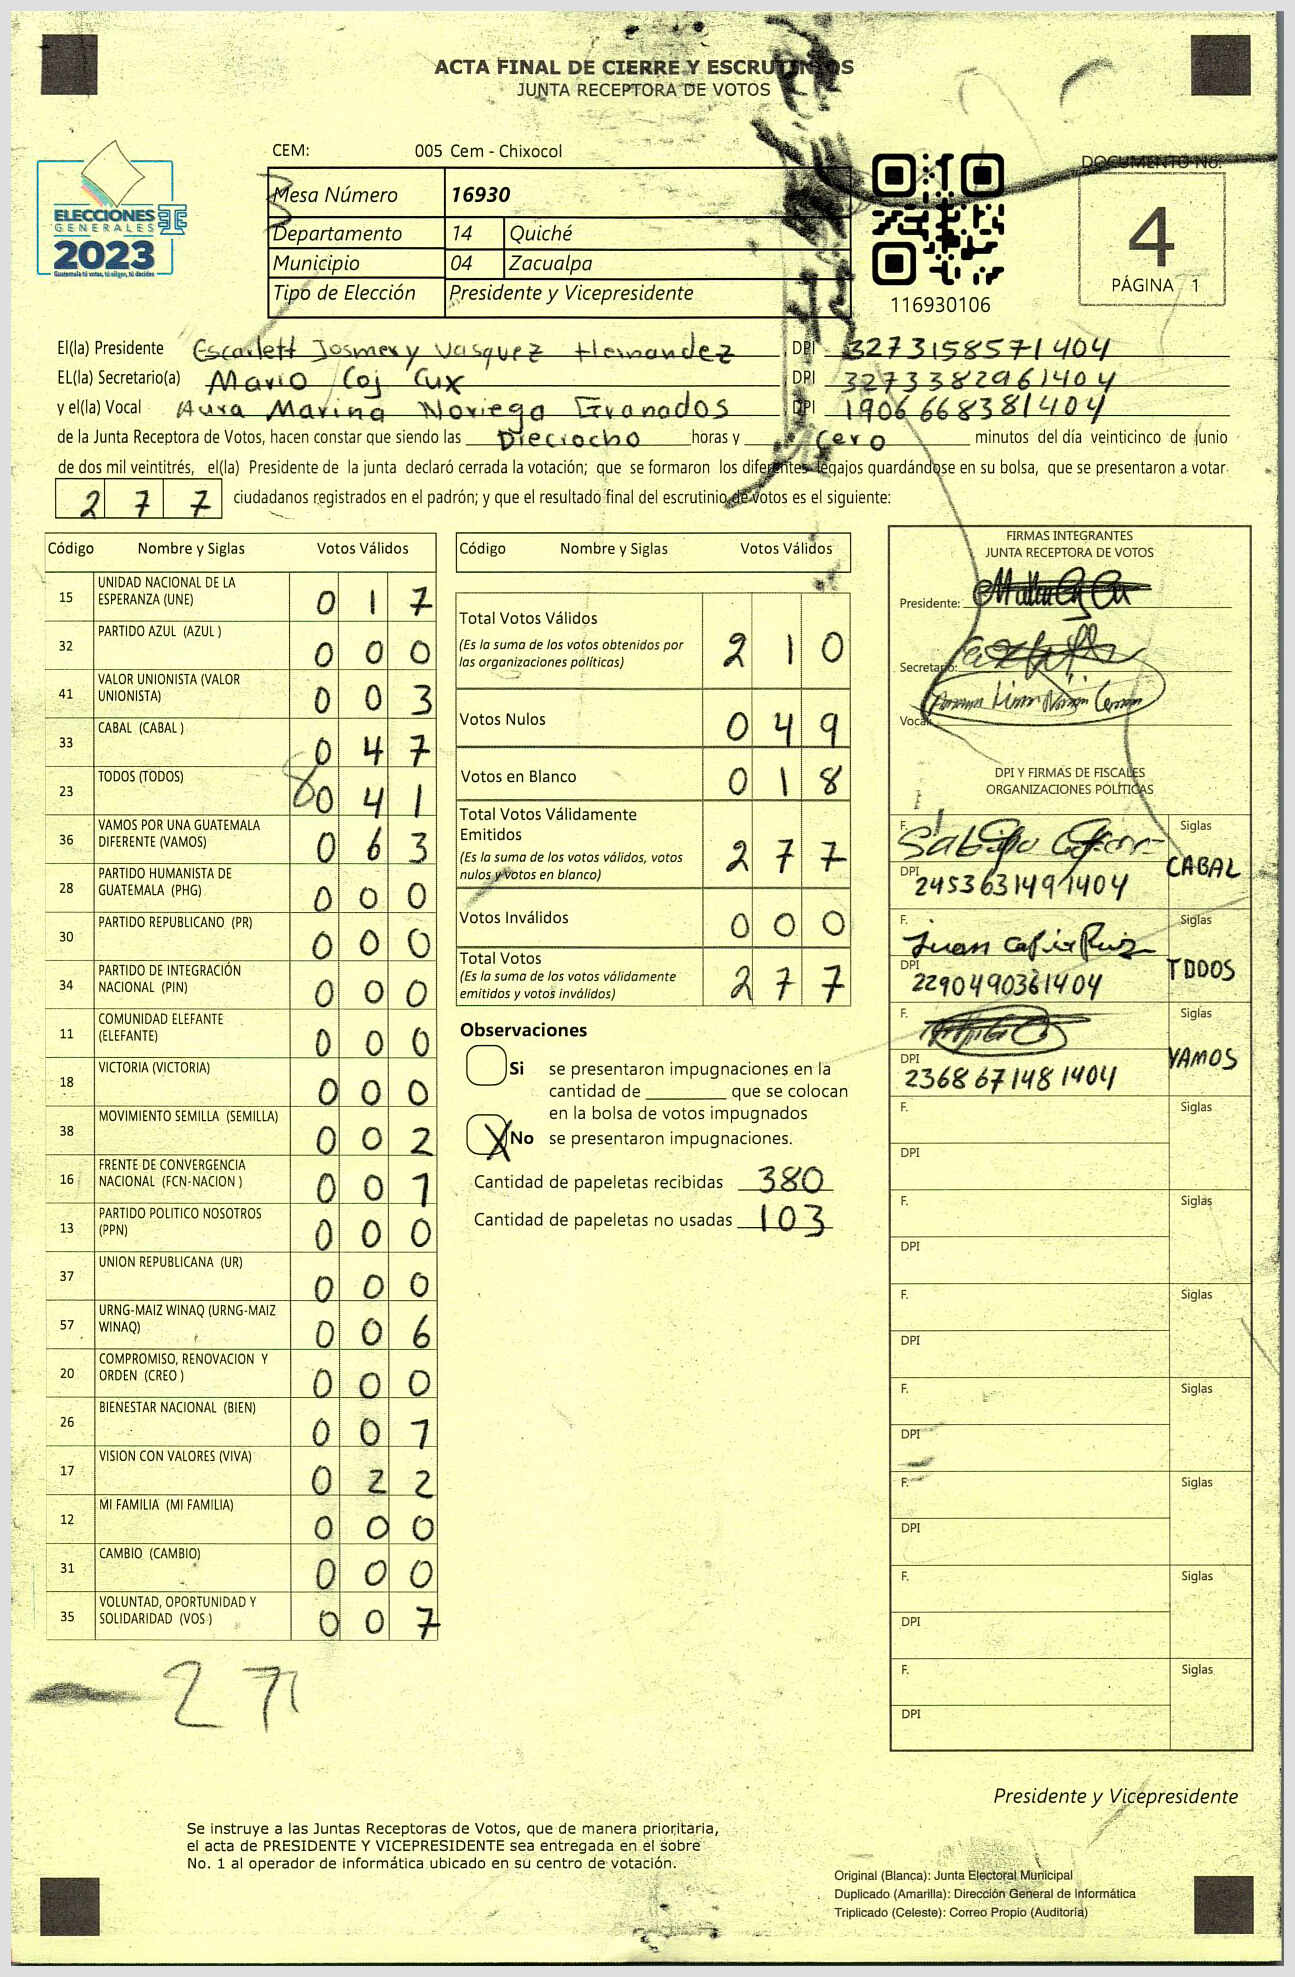 ACTA FINAL DE CIERRE Y ESCRUTINIOS
JUNTA RECEPTORA DE VOTOS
CEM: 005 Cem - Chixocol
DOCUMENTO No.
4
PÁGINA 1
ELECCIONES
GENERALES
2023
Guatemala tú votas, tú eliges, tú decides
Mesa Número 16930
Departamento 14 Quiché
Municipio 04 Zacualpa
Tipo de Elección Presidente y Vicepresidente
116930106
El(la) Presidente Escarlett Josmery Vasquez Hernandez DPI 3273158571404
EL(la) Secretario(a) Mario Coj Cux DPI 3273382961404
y el(la) Vocal Aura Marina Noriega Granados DPI 1906668381404
de la Junta Receptora de Votos, hacen constar que siendo las Dieciocho horas y Cero minutos del día veinticinco de junio
de dos mil veintitrés, el(la) Presidente de la junta declaró cerrada la votación; que se formaron los diferentes legajos guardándose en su bolsa, que se presentaron a votar
277 ciudadanos registrados en el padrón; y que el resultado final del escrutinio de votos es el siguiente:
Código Nombre y Siglas Votos Válidos
15 UNIDAD NACIONAL DE LA ESPERANZA (UNE) 017
32 PARTIDO AZUL (AZUL ) 000
41 VALOR UNIONISTA (VALOR UNIONISTA) 003
33 CABAL (CABAL ) 047
23 TODOS (TODOS) 041
36 VAMOS POR UNA GUATEMALA DIFERENTE (VAMOS) 063
28 PARTIDO HUMANISTA DE GUATEMALA (PHG) 000
30 PARTIDO REPUBLICANO (PR) 000
34 PARTIDO DE INTEGRACIÓN NACIONAL (PIN) 000
11 COMUNIDAD ELEFANTE (ELEFANTE) 000
18 VICTORIA (VICTORIA) 000
38 MOVIMIENTO SEMILLA (SEMILLA) 002
16 FRENTE DE CONVERGENCIA NACIONAL (FCN-NACION ) 001
13 PARTIDO POLITICO NOSOTROS (PPN) 000
37 UNION REPUBLICANA (UR) 000
57 URNG-MAIZ WINAQ (URNG-MAIZ WINAQ) 006
20 COMPROMISO, RENOVACION Y ORDEN (CREO ) 000
26 BIENESTAR NACIONAL (BIEN) 001
17 VISION CON VALORES (VIVA) 022
12 MI FAMILIA (MI FAMILIA) 000
31 CAMBIO (CAMBIO) 000
35 VOLUNTAD, OPORTUNIDAD Y SOLIDARIDAD (VOS ) 007
Código Nombre y Siglas Votos Válidos
Total Votos Válidos 210
(Es la suma de los votos obtenidos por
las organizaciones políticas)
Votos Nulos 049
Votos en Blanco 018
Total Votos Válidamente
Emitidos 277
(Es la suma de los votos válidos, votos
nulos y votos en blanco)
Votos Inválidos 000
Total Votos 277
(Es la suma de los votos válidamente
emitidos y votos inválidos)
Observaciones
Si se presentaron impugnaciones en la
cantidad de ________ que se colocan
en la bolsa de votos impugnados
X No se presentaron impugnaciones.
Cantidad de papeletas recibidas 380
Cantidad de papeletas no usadas 103
FIRMAS INTEGRANTES
JUNTA RECEPTORA DE VOTOS
Presidente:
Secretario:
Vocal:
DPI Y FIRMAS DE FISCALES
ORGANIZACIONES POLÍTICAS
F. Siglas
DPI 2453631491404 CABAL
F. Juan Siglas
DPI 2290490361404 TODOS
F. Siglas
DPI 2368671481404 VAMOS
F. Siglas
DPI
F. Siglas
DPI
F. Siglas
DPI
F. Siglas
DPI
F. Siglas
DPI
F. Siglas
DPI
F. Siglas
DPI
Presidente y Vicepresidente
Se instruye a las Juntas Receptoras de Votos, que de manera prioritaria,
el acta de PRESIDENTE Y VICEPRESIDENTE sea entregada en el sobre
No. 1 al operador de informática ubicado en su centro de votación.
Original (Blanca): Junta Electoral Municipal
Duplicado (Amarilla): Dirección General de Informática
Triplicado (Celeste): Correo Propio (Auditoría)